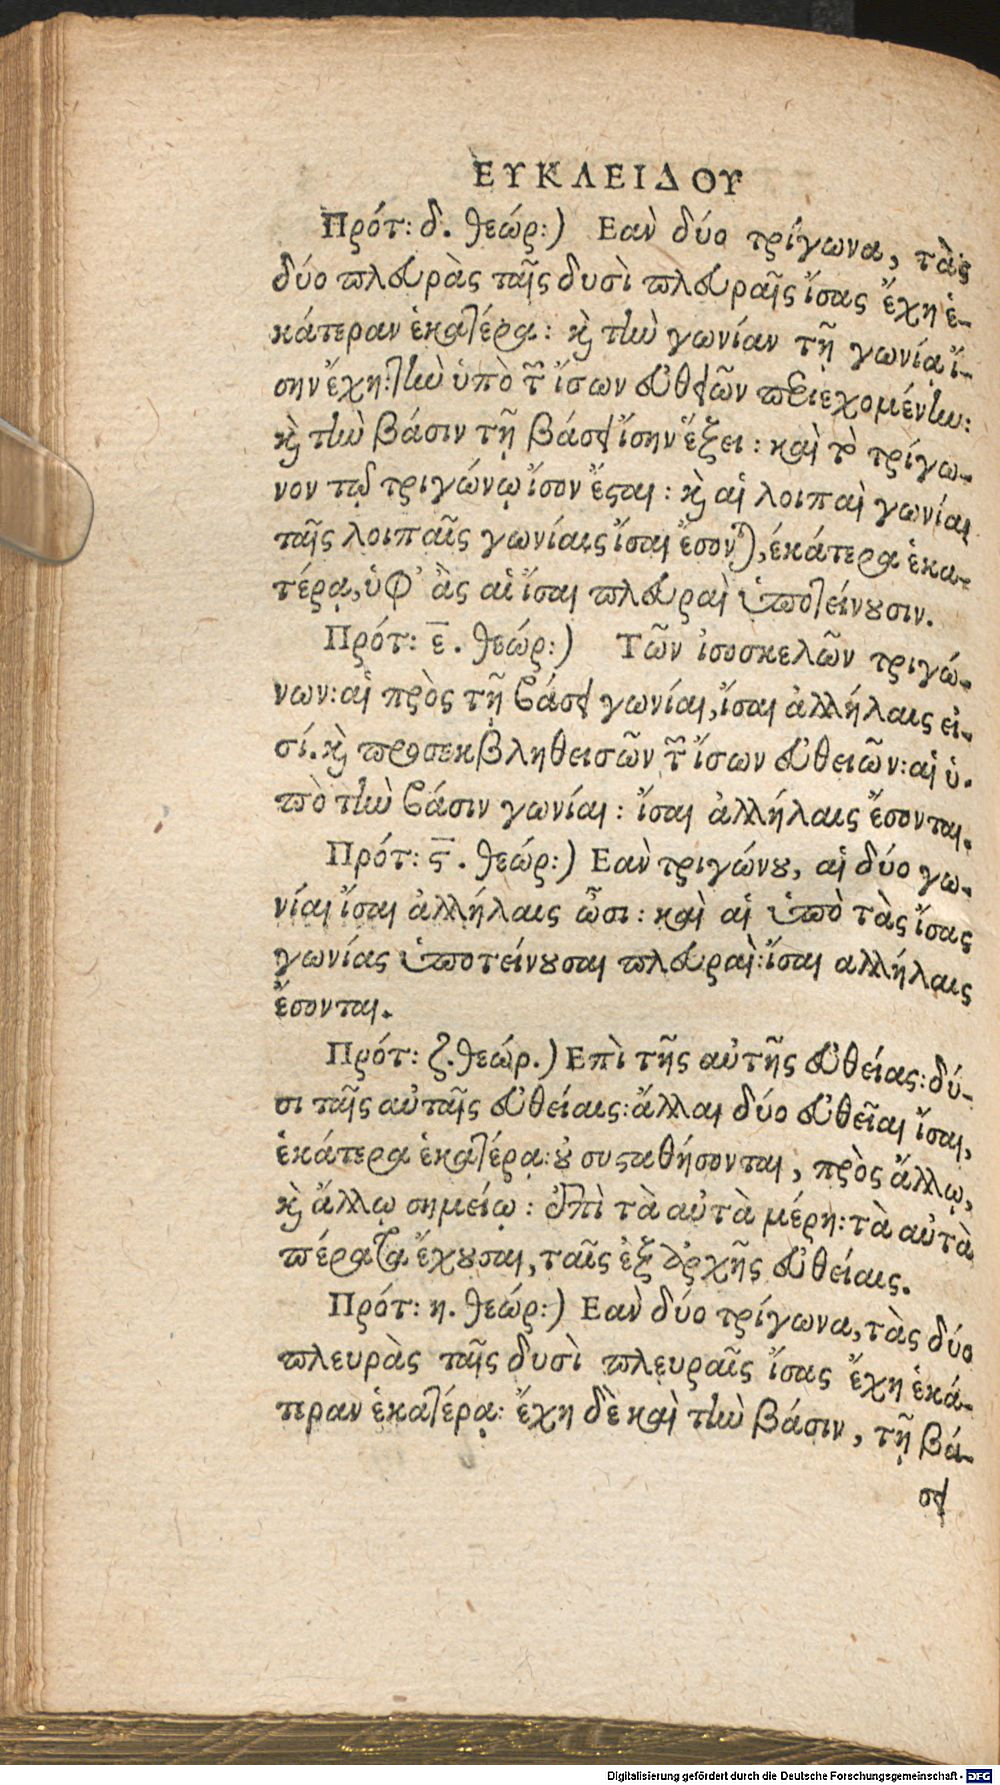 ΕΥΚΛΕΙΔΟΥ
Πρότ: δ. θεώρ:) Εαν δύο τρίγωνα, τὰς
δύο πλευρὰς ταῖς δυσὶ πλευραῖς ἴσας ἔχη ἑ-
κάτεραν ἑκατέρα: καὶ τὴν γωνίαν τῇ γωνίᾳ ἴ-
σην ἔχη: τὴν ὑπὸ τῶν ἴσων εὐθειῶν περιεχομένην:
καὶ τὴν βάσιν τῇ βάσει ἴσην ἕξει: καὶ τὸ τρίγω-
νον τῷ τριγώνῳ ἴσον ἔσται: καὶ αἱ λοιπαὶ γωνίαι
ταῖς λοιπαῖς γωνίαις ἴσαι ἔσονται, ἑκάτερα ἑκα-
τέρᾳ, ὑφ' ἃς αἱ ἴσαι πλευραὶ ὑποτείνουσιν.
Πρότ: ε. θεώρ:) Τῶν ἰσοσκελῶν τριγώ-
νων: αἱ πρὸς τῇ βάσει γωνίαι, ἴσαι ἀλλήλαις εἰ-
σί. καὶ προσεκβληθεισῶν τῶν ἴσων εὐθειῶν: αἱ ὑ-
πὸ τὴν βάσιν γωνίαι: ἴσαι ἀλλήλαις ἔσονται.
Πρότ: ϛ. θεώρ:) Εαν τριγώνου, αἱ δύο γω-
νίαι ἴσαι ἀλλήλαις ὦσι: καὶ αἱ ὑπὸ τὰς ἴσας
γωνίας ὑποτείνουσαι πλευραὶ: ἴσαι αλλήλαις
ἔσονται.
Πρότ: ζ. θεώρ.) Επὶ τῆς αὐτῆς εὐθείας: δύ-
σι ταῖς αὐταῖς εὐθείαις: ἄλλαι δύο εὐθεῖαι ἴσαι,
ἑκάτερα ἑκατέρᾳ: οὐ συσταθήσονται, πρὸς ἄλλῳ,
καὶ ἄλλῳ σημείῳ: ἐπὶ τὰ αὐτὰ μέρη: τὰ αὐτὰ
πέρατα ἔχουσαι, ταῖς ἐξ ἀρχῆς εὐθείαις.
Πρότ: η. θεώρ:) Εαν δύο τρίγωνα, τὰς δύο
πλευρὰς ταῖς δυσὶ πλευραῖς ἴσας ἔχη ἑκά-
τεραν ἑκατέρᾳ: ἔχη δὲ καὶ τὴν βάσιν, τῇ βά-
σει
Digitalisierung gefördert durch die Deutsche Forschungsgemeinschaft - DFG